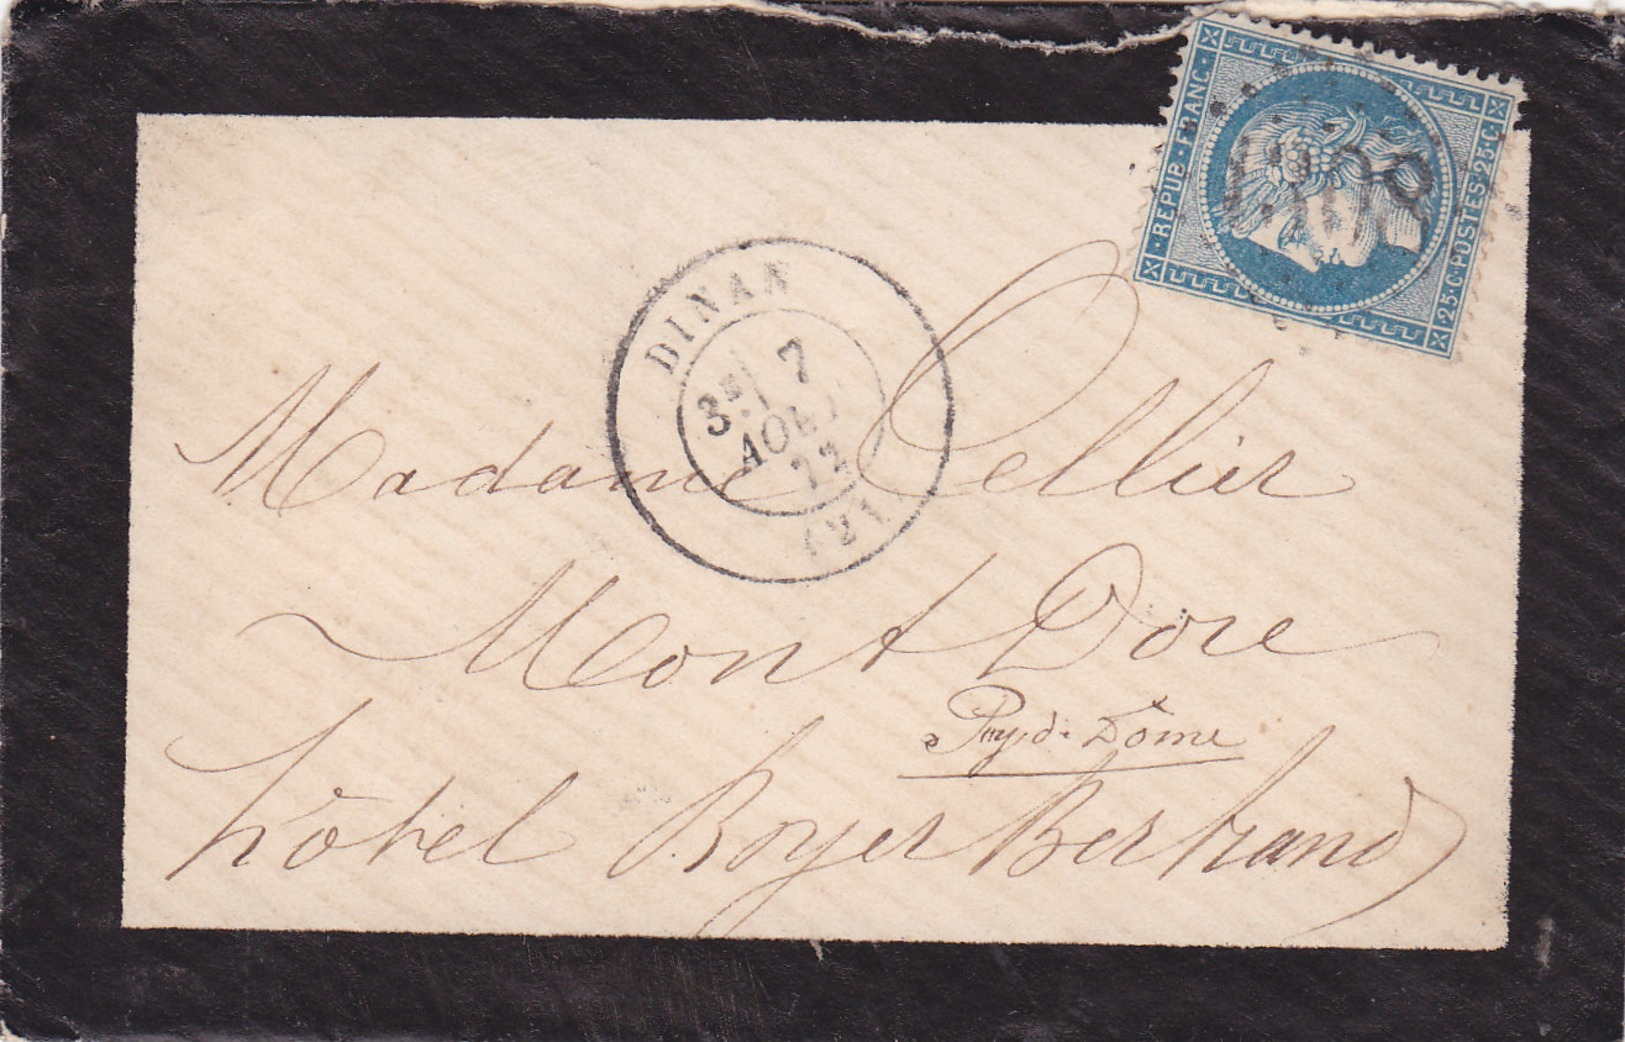 REPUB·FRANC·
25·C·POSTES·25·C
DINAN
3E 7
AOUT
72
(21)
Madame Cellier
Mont Dore
Puy-de-Dôme
hôtel Boyer Bertrand